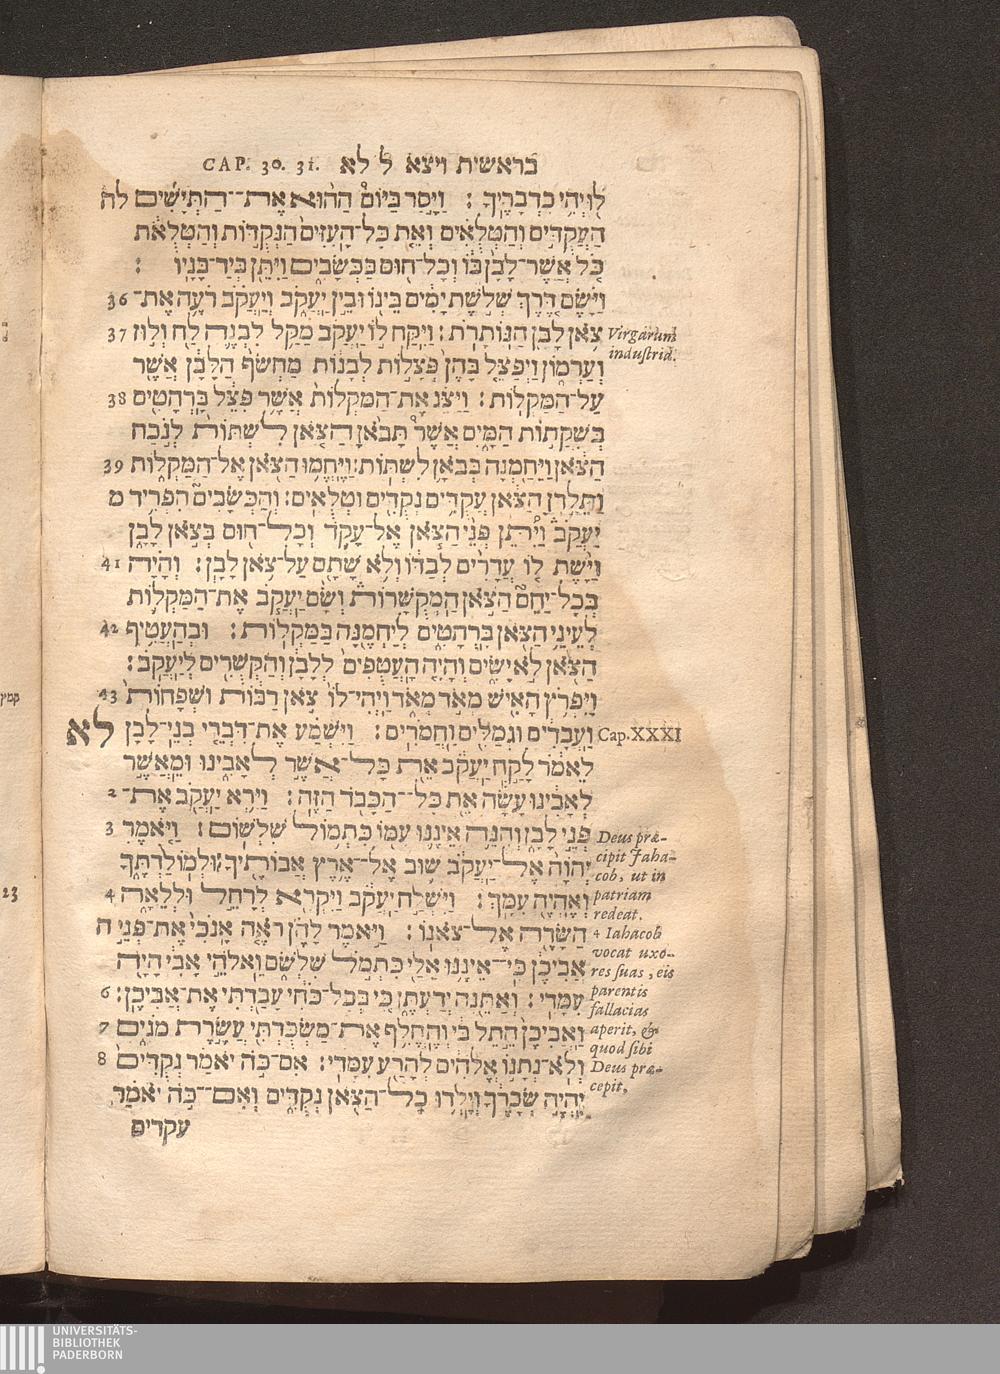 בראשית ויצא ל לא CAP. 30. 31.
לוּ יְהִי כִדְבָרֶיךָ׃ וַיָּסַר בַּיּוֹם הַהוּא אֶת־הַתְּיָשִׁים לה
הָעֲקֻדִּים וְהַטְּלֻאִים וְאֵת כָּל־הָעִזִּים הַנְּקֻדּוֹת וְהַטְּלֻאֹת
כֹּל אֲשֶׁר־לָבָן בּוֹ וְכָל־חוּם בַּכְּשָׂבִים וַיִּתֵּן בְּיַד־בָּנָיו׃
וַיָּשֶׂם דֶּרֶךְ שְׁלֹשֶׁת יָמִים בֵּינוֹ וּבֵין יַעֲקֹב וְיַעֲקֹב רֹעֶה אֶת־ 36
צֹאן לָבָן הַנּוֹתָרֹת׃ וַיִּקַּח לוֹ יַעֲקֹב מַקַּל לִבְנֶה לַח וְלוּז 37
Virgarum
industria.
וְעַרְמוֹן וַיְפַצֵּל בָּהֵן פְּצָלוֹת לְבָנוֹת מַחְשֹׂף הַלָּבָן אֲשֶׁר
עַל־הַמַּקְלוֹת׃ וַיַּצֵּג אֶת־הַמַּקְלוֹת אֲשֶׁר פִּצֵּל בָּרְהָטִים 38
בְּשִׁקֲתוֹת הַמָּיִם אֲשֶׁר תָּבֹאןָ הַצֹּאן לִשְׁתּוֹת לְנֹכַח
הַצֹּאן וַיֵּחַמְנָה בְּבֹאָן לִשְׁתּוֹת׃ וַיֶּחֱמוּ הַצֹּאן אֶל־הַמַּקְלוֹת 39
וַתֵּלַדְןָ הַצֹּאן עֲקֻדִּים נְקֻדִּים וּטְלֻאִים׃ וְהַכְּשָׂבִים הִפְרִיד מ
יַעֲקֹב וַיִּתֵּן פְּנֵי הַצֹּאן אֶל־עָקֹד וְכָל־חוּם בְּצֹאן לָבָן
וַיָּשֶׁת לוֹ עֲדָרִים לְבַדּוֹ וְלֹא שָׁתָם עַל־צֹאן לָבָן׃ וְהָיָה 41
בְּכָל־יַחֵם הַצֹּאן הַמְקֻשָּׁרוֹת וְשָׂם יַעֲקֹב אֶת־הַמַּקְלוֹת
לְעֵינֵי הַצֹּאן בָּרְהָטִים לְיַחְמֵנָּה בַּמַּקְלוֹת׃ וּבְהַעֲטִיף 42
הַצֹּאן לֹא יָשִׂים וְהָיָה הָעֲטֻפִים לְלָבָן וְהַקְּשֻׁרִים לְיַעֲקֹב׃
וַיִּפְרֹץ הָאִישׁ מְאֹד מְאֹד וַיְהִי־לוֹ צֹאן רַבּוֹת וּשְׁפָחוֹת 43
וַעֲבָדִים וּגְמַלִּים וַחֲמֹרִים׃ וַיִּשְׁמַע אֶת־דִּבְרֵי בְנֵי־לָבָן לא
Cap. XXXI
לֵאמֹר לָקַח יַעֲקֹב אֵת כָּל־אֲשֶׁר לְאָבִינוּ וּמֵאֲשֶׁר
לְאָבִינוּ עָשָׂה אֵת כָּל־הַכָּבֹד הַזֶּה׃ וַיַּרְא יַעֲקֹב אֶת־ 2
פְּנֵי לָבָן וְהִנֵּה אֵינֶנּוּ עִמּוֹ כִּתְמוֹל שִׁלְשׁוֹם׃ וַיֹּאמֶר 3
יְהוָה אֶל־יַעֲקֹב שׁוּב אֶל־אֶרֶץ אֲבוֹתֶיךָ וּלְמוֹלַדְתֶּךָ
וְאֶהְיֶה עִמָּךְ׃ וַיִּשְׁלַח יַעֲקֹב וַיִּקְרָא לְרָחֵל וּלְלֵאָה 4
הַשָּׂדֶה אֶל־צֹאנוֹ׃ וַיֹּאמֶר לָהֶן רֹאֶה אָנֹכִי אֶת־פְּנֵי ה
אֲבִיכֶן כִּי־אֵינֶנּוּ אֵלַי כִּתְמֹל שִׁלְשֹׁם וֵאלֹהֵי אָבִי הָיָה
עִמָּדִי׃ וְאַתֵּנָה יְדַעְתֶּן כִּי בְּכָל־כֹּחִי עָבַדְתִּי אֶת־אֲבִיכֶן׃ 6
וַאֲבִיכֶן הֵתֶל בִּי וְהֶחֱלִף אֶת־מַשְׂכֻּרְתִּי עֲשֶׂרֶת מֹנִים 7
וְלֹא־נְתָנוֹ אֱלֹהִים לְהָרַע עִמָּדִי׃ אִם־כֹּה יֹאמַר נְקֻדִּים 8
יִהְיֶה שְׂכָרֶךָ וְיָלְדוּ כָל־הַצֹּאן נְקֻדִּים וְאִם־כֹּה יֹאמַר
עקדים
Deus præ-
cipit Jaha-
cob, ut in
patriam
redeat.
4 Iahacob
vocat uxo-
res suas, eis
parentis
fallacias
aperit, &
quod sibi
Deus præ-
cepit.
קמץ
23
UNIVERSITÄTS-
BIBLIOTHEK
PADERBORN